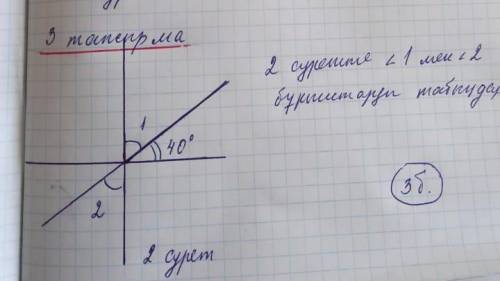 3 тапсрма
2 суретте < 1 мен < 2
бұрыштарды табыңдар
1
40°
2
3б.
2 сурет